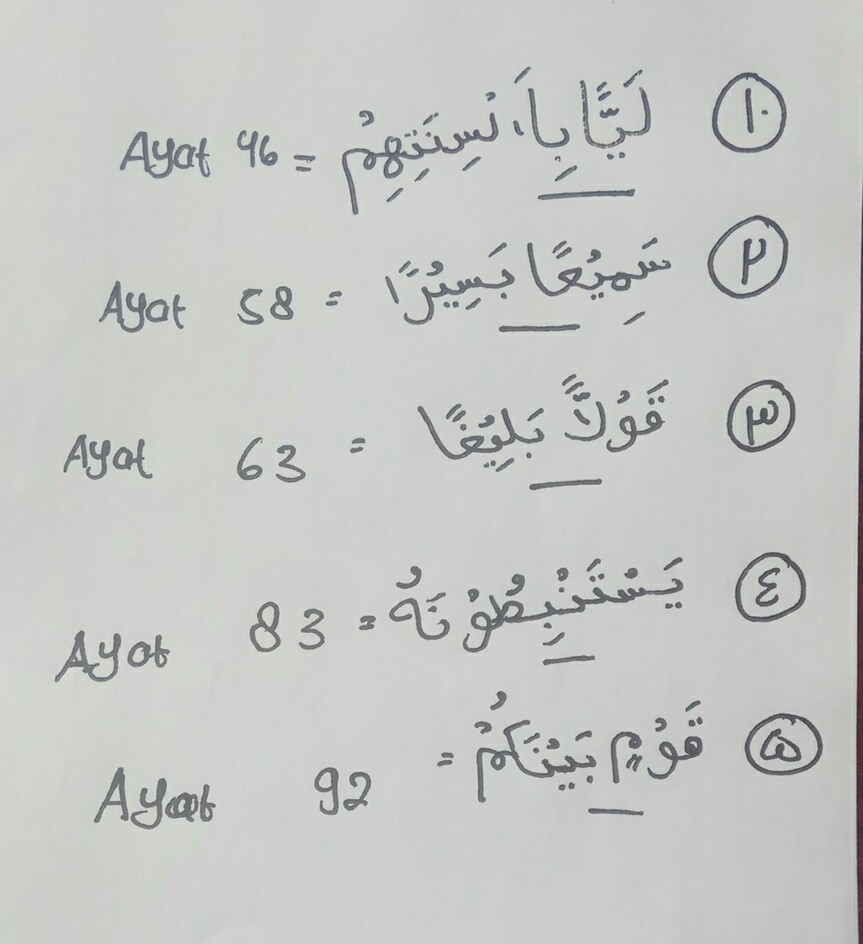 ١٠ لَيًّا بِاَ لْسِنَتِهِمْ = Ayat 46
٢ سَمِيْعًا بَسِيْرًا = Ayat 58
٣ قَوْلًا بَلِيْغًا = Ayat 63
٤ يَسْتَنْبِطُوْنَهُ = Ayat 83
٥ قَوْمٍ بَيْنَكُمْ = Ayat 92